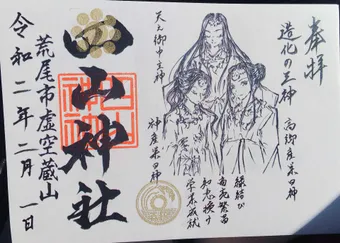 奉拝
造化の三神
高御産巣日神
天之御中主神
神産巣日神
縁結び
商売繁盛
学業成就
四山神社
荒尾市虚空蔵山
令和二年二月一日